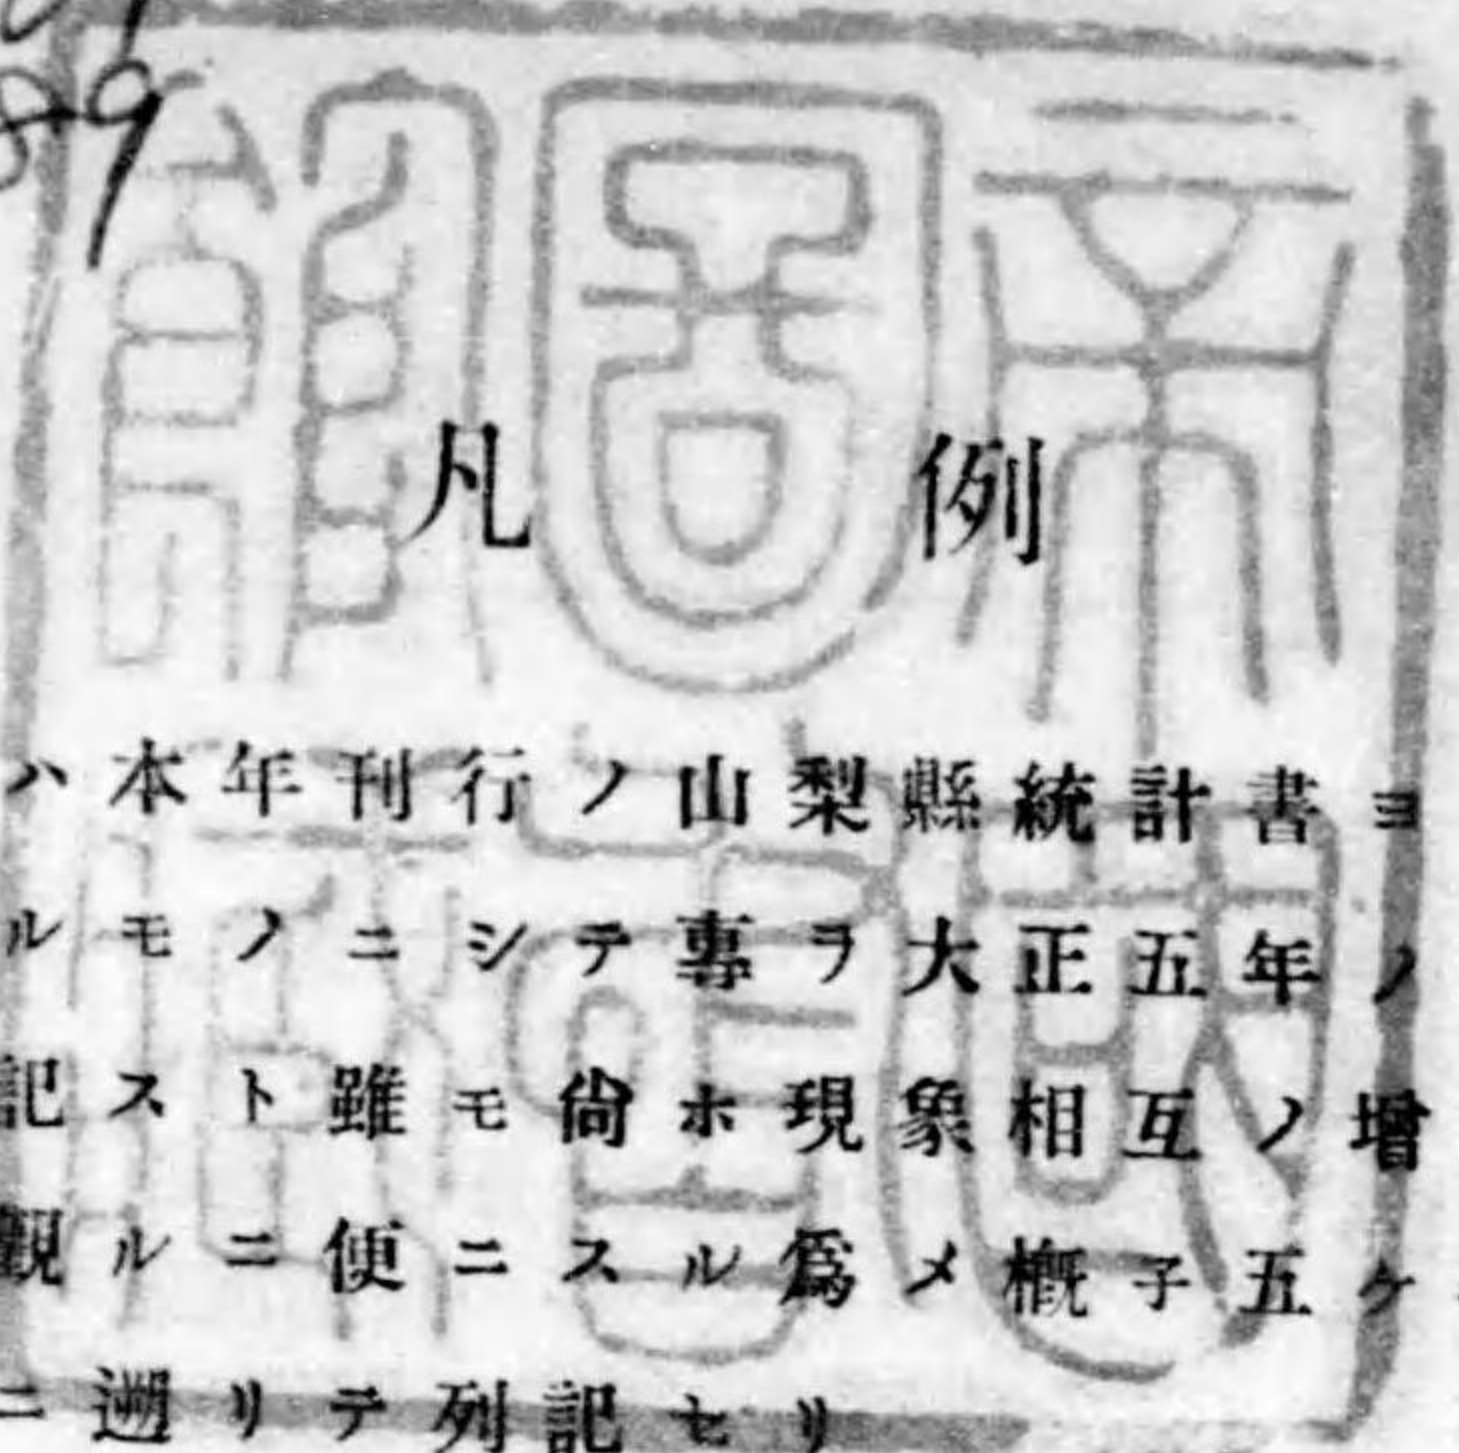 凡例
ハ本年刊行ノ山梨縣統計書ヨ
ルモノニシテ專ラ大正五年ノ
記スト雖モ尙ホ現象相互ノ增
觀ルニ便ニスル爲メ槪子五ケ
ニ遡リテ列記セリ
帝國圖書館藏